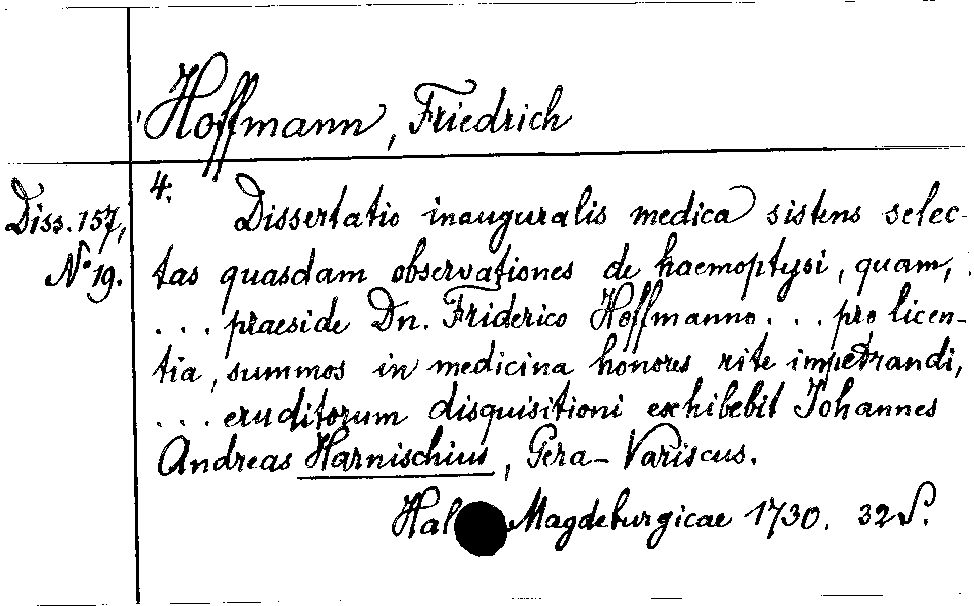 Hoffmann, Friedrich
Diss. 157,
No 19.
4. Dissertatio inauguralis medica sistens selec-
tas quasdam observationes de haemoptysi, quam,
... praeside Dn. Friderico Hoffmanno... pro licen-
tia, summos in medicina honores rite impetrandi,
... eruditorum disquisitioni exhibebit Johannes
Andreas Harnischius, Gera-Variscus.
Magdeburgicae 1730. 32 S.